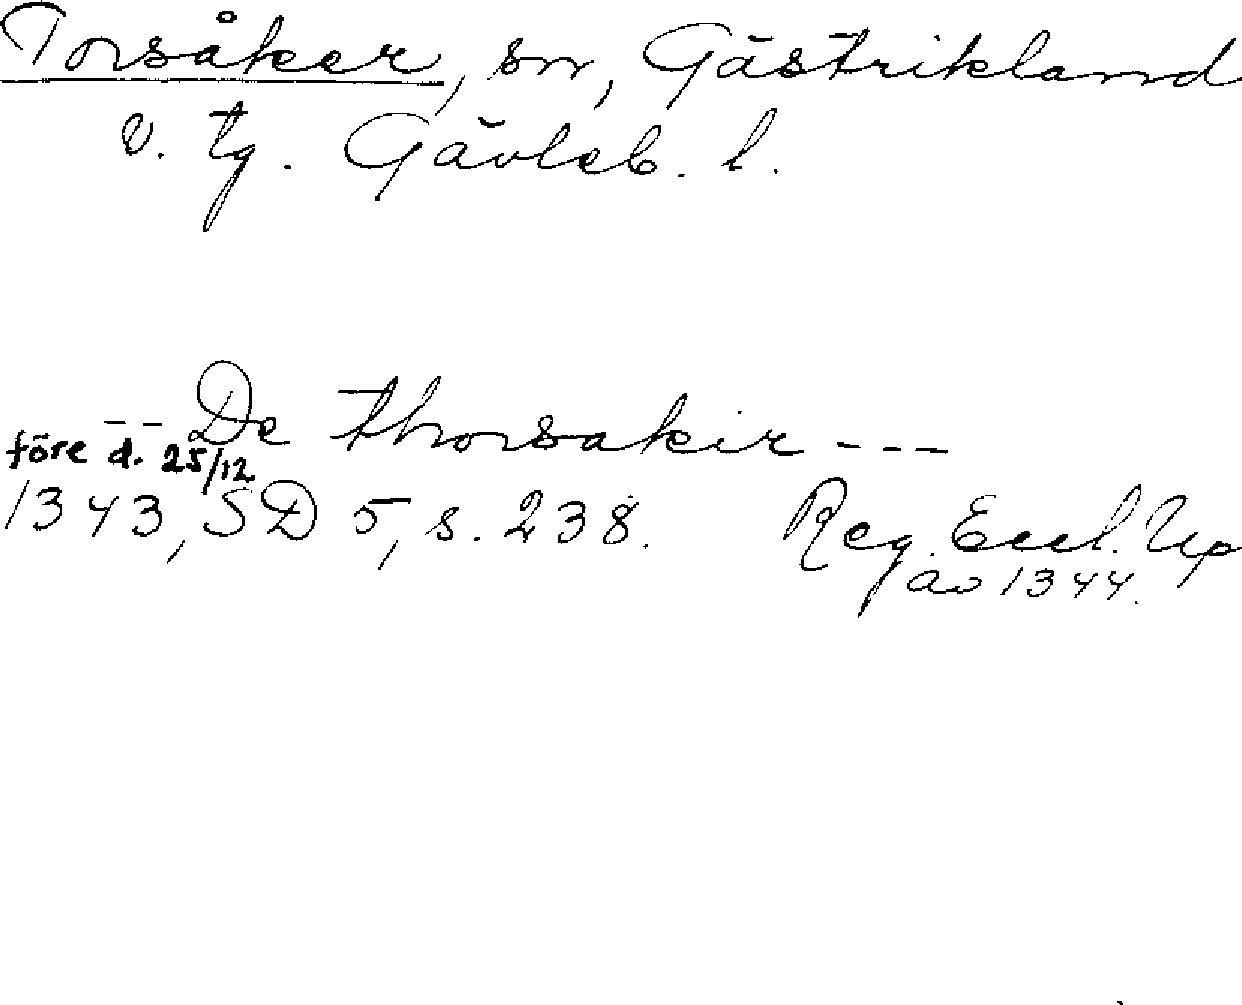 Torsåker, sn, Gästrikland
V. tg. Gävleb. l.
-- De thorsakir ---
före d. 25/12
1343, SD 5, s. 238. Reg. Eccl. Up
av 1344.